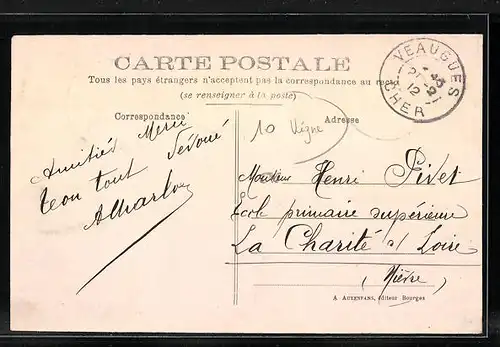 CARTE POSTALE
Tous les pays étrangers n'acceptent pas la correspondance au
(se renseigner à la poste)
Correspondance
Adresse
VEAUGUES
CHER
10 Vigne
Amitiés Merci
Ton tout Dévoué
Monsieur Henri Pivet
Ecole primaire supérieure
La Charité s/ Loire
(Nièvre)
A AUXENFANS, éditeur Bourges